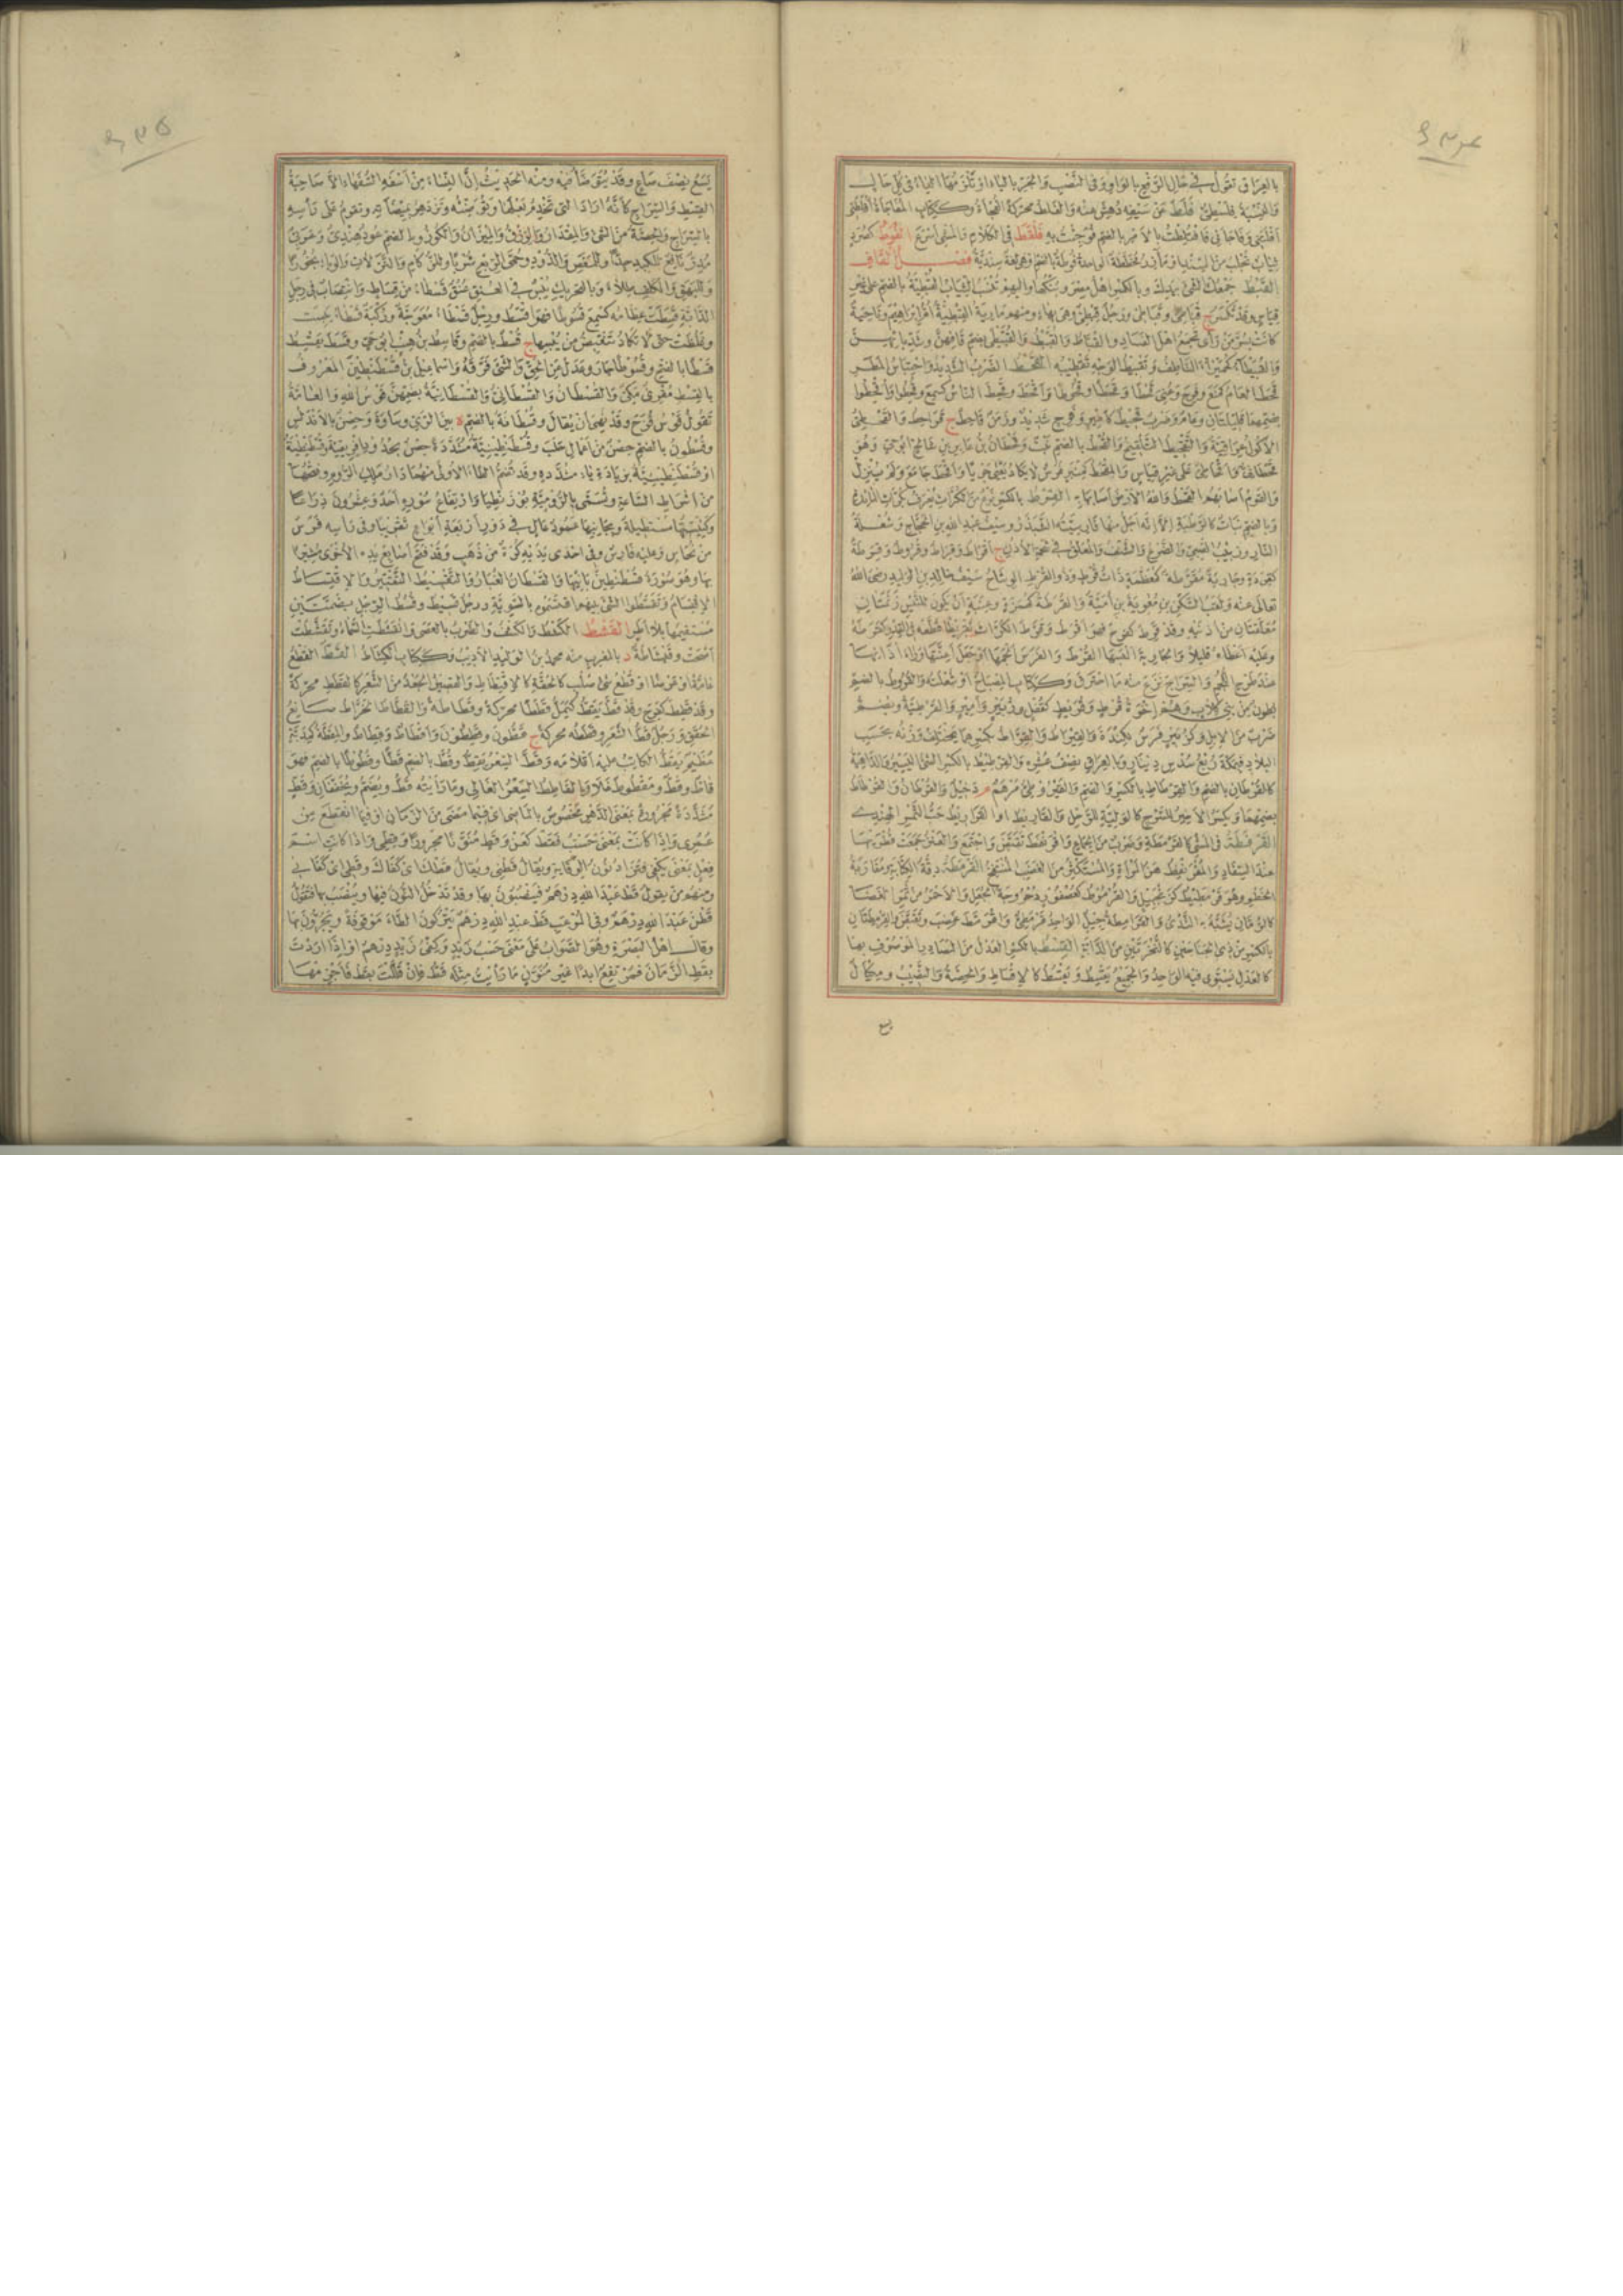 بالعراق تقول في حال الرفع بالواو وفي النصب والجر بالياء او تلزمها الياء في كل حال
والنسبة فلسطي فلط عن سيفه دهش عنه والفلط محركة الفجاءة وككتاب المفاجاة افلطني
افلتني وفاجاني فافتلطت بالامر بالضم فوجئت به فلقط في الكلام والمشي اسرع الفوط كصرد
ثياب تجلب من السند او مآزر مخططة الواحدة فوطة بالضم وهي لغة سندية فصل القاف
القبط جمعك الشيء بيدك وبالكسر اهل مصر وبنكها واليهم تنسب الثياب القبطية بالضم على غير
قياس وقد تكسر ج قباطي وقباطي ورجل قبطي وهي بهاء ومنهم مارية القبطية ام ابراهيم وناحية
كانت بسر من رأى تجمع اهل الفساد والقباط والقبيط والقبيطى بضم قافهن وشد بائهن
والقبيطاء كحميراء الناطف وتقبيط الوجه تقطيبه القحط الضرب الشديد واحتباس المطر
قحط العام كمنع وفرح وعني قحطا وقحطا وقحوطا واقحط وقحط الناس كسمع وقحطوا واقحطوا
بضمهما قليلتان وعام وضرب قحيط كامير وفرح شديد وزمن قاحط ج قواحط والقحطي
الاكول عراقية والتقحيط التلقيح والقحط بالضم نبت وقحطان بن عابر بن شالخ ابو حي وهو
قحطاني واقحاطي على غير قياس والمقحط كمنبر فرس لا يكاد يعيي جريا واقحط جامع ولم ينزل
والقوم اصابهم القحط والله الارض اصابها به القرط بالكسر نوع من الكراث يعرف بكراث المائدة
وبالضم نبات كالرطبة الا انه اجل منها فارسيته الشبذر وسيف عبد الله بن الحجاج وشعلة
النار وزبيب الصبي والضرع والشنف والمعلق في شحمة الاذن ج اقراط وقراط وقروط وقرطة
كقردة وجارية مقرطة كمعظمة ذات قرط وذو القرط الوشاح سيف خالد بن الوليد رضي الله
تعالى عنه ولقب السكن بن معوية بن امية والقرطة كهمزة وعنبة ان يكون للتيس زنمتان
معلقتان من اذنيه وقد قرط كفرح فهو اقرط وقرط الكراث تقريطا قطعه في القدر كقرطه
وعليه اعطاه قليلا والجارية البسها القرط والفرس الجمها او جعل اعنتها وراء اذانها
عند طرح اللجم والسراج نزع منه ما احترق وككتاب المصباح او شعلته والقروط بالضم
بطون من بني كلاب وهم اخوة قرط وقريط كقفل وزبير وامير والقرطية وبضم
ضرب من الابل وكزبير فرس لكندة والقيراط والقراط بكسرهما يختلف وزنه بحسب
البلاد فبمكة ربع سدس دينار وبالعراق نصف عشره والقرطيط بالكسر الشيء اليسير والداهية
كالقرطان بالضم والقرطاط بالكسر والضم
القرفطة في المشي كالقرمطة وضرب من الجماع واقرنفط تقبض واجتمع والعنز جمعت قطريها
عند السفاد والمقرنفط هن المراة والمستكثر من الغضب المنتفخ القرمطة دقة الكتابة ومقاربة
الخطو وهو قرمطيط كزنجبيل والقرموط كعصفور دحروجة الجعل والاحمر من ثمر الغضا
كالرمان يشبه به الثدي والقرامطة جيل الواحد قرمطي واقرمط غضب وتقبض والقرمطتان
بالكسر من ذي الجناحين كالنخرتين من الدابة القسط بالكسر العدل من المصادر الموصوف بها
كالعدل يستوي فيه الواحد والجميع يقسط ويقسط كالاقساط والحصة والنصيب ومكيال
يسع
يسع نصف صاع وقد يتوضأ فيه ومنه الحديث ان النساء من اسفه السفهاء الا صاحبة
القسط والسراج كانه اراد التي تخدم بعلها وتوضئه وتزدهر بميضأته وتقوم على رأسه
بالسراج والحصة من الشيء والمقدار والرزق والميزان والكوز وبالضم عود هندي وعربي
مدر نافع للكبد جدا والمغص والدود وحمى الربع شربا وللزكام والنزلات والوباء بخورا
وللبهق والكلف طلاء وبالتحريك يبس في العنق عنق قسطاء من قساط وانتصاب في رجل
الدابة قسطت عظامه كسمع قسوطا فهو اقسط ورجل قسطاء معوجة وركبة قسطاء يبست
وغلظت حتى لا تكاد تنقبض من يبسها ج قسط بالضم وقاسط بن هنب ابو حي وقسط يقسط
قسطا بالفتح وقسوطا جار وعدل عن الحق والشيء فرقه واسماعيل بن قسطنطين المعروف
بالقسط مقرئ مكي والقسطان والقسطاني والقسطانية بضمهن قوس الله والعامة
تقول قوس قزح وقد نهي ان يقال وقسطانة بالضم ة بين الري وساوة وحصن بالاندلس
وقسطون بالضم حصن من اعمال حلب وقسطنطينية مشددة حصن بحد افريقية وقسطنطينة
او قسطنطينية بزيادة ياء مشددة وقد تضم الطاء الاولى منهما دار ملك الروم وفتحها
من اشراط الساعة وتسمى بالرومية بوزنطيا وارتفاع سوره احد وعشرون ذراعا
وكنيستها مستطيلة وبجانبها عمود عال في دور اربعة ابواع تقريبا وفي راسه فرس
من نحاس وعليه فارس وفي احدى يديه كرة من ذهب وقد فتح اصابع يده الاخرى مشيرا
بها وهو صورة قسطنطين بانيها والقسطان الغبار والتقسيط التقتير والاقتساط
الاقتسام وتقسطوا الشيء بينهم اقتسموه بالسوية ورجل قسيط وقسط الرجل بضمتين
مستقيمها بلا اطر القشط الكشط والكشف والضرب بالعصا وانقشطت السماء وتقشطت
اصحت وقشاطة د بالمغرب منه محمد بن الوليد الاديب وككتاب الكشاط القط القطع
عامة او عرضا او قطع شيء صلب كالحقة كالاقتطاط والقصير الجعد من الشعر كالقطط محركة
وقد قطط كفرح وقد قط يقط كيمل قططا محركة وقطاطة والقطاط الخراط صانع
الحقق ورجل قط الشعر وقططه محركة ج قطون وقططون واقطاط وقطاط والمقطة كمذبة
عظيم يقط الكاتب عليه اقلامه وقط السعر يقط وقط بالضم قطا وقطوطا بالضم فهو
قاط وقط ومقطوط غلا والقاطط السعر الغالي وما رايته قط ويضم ويخففان وقط
مشددة مجرورة بمعنى الدهر مخصوص بالماضي اي فيما مضى من الزمان او فيما انقطع من
عمري واذا كانت بمعنى حسب فقط كعن وقط منونا مجرورا وقطي واذا كانت اسم
فعل بمعنى يكفي فتزاد نون الوقاية ويقال قطني ويقال قطك اي كفاك وقطي اي كفاني
ومنهم من يقول قط عبد الله درهم فينصبون بها وقد تدخل النون فيها وينصب بها فتقول
قطن عبد الله درهم وفي الموعب قط عبد الله درهم يتركون الطاء موقوفة ويجرون بها
وقال اهل البصرة وهو الصواب على معنى حسب زيد وكفي زيد درهم او اذا اردت
بقط الزمان فمرتفع ابدا غير منون ما رأيت مثله قط فان قللت بقط فاجزمها